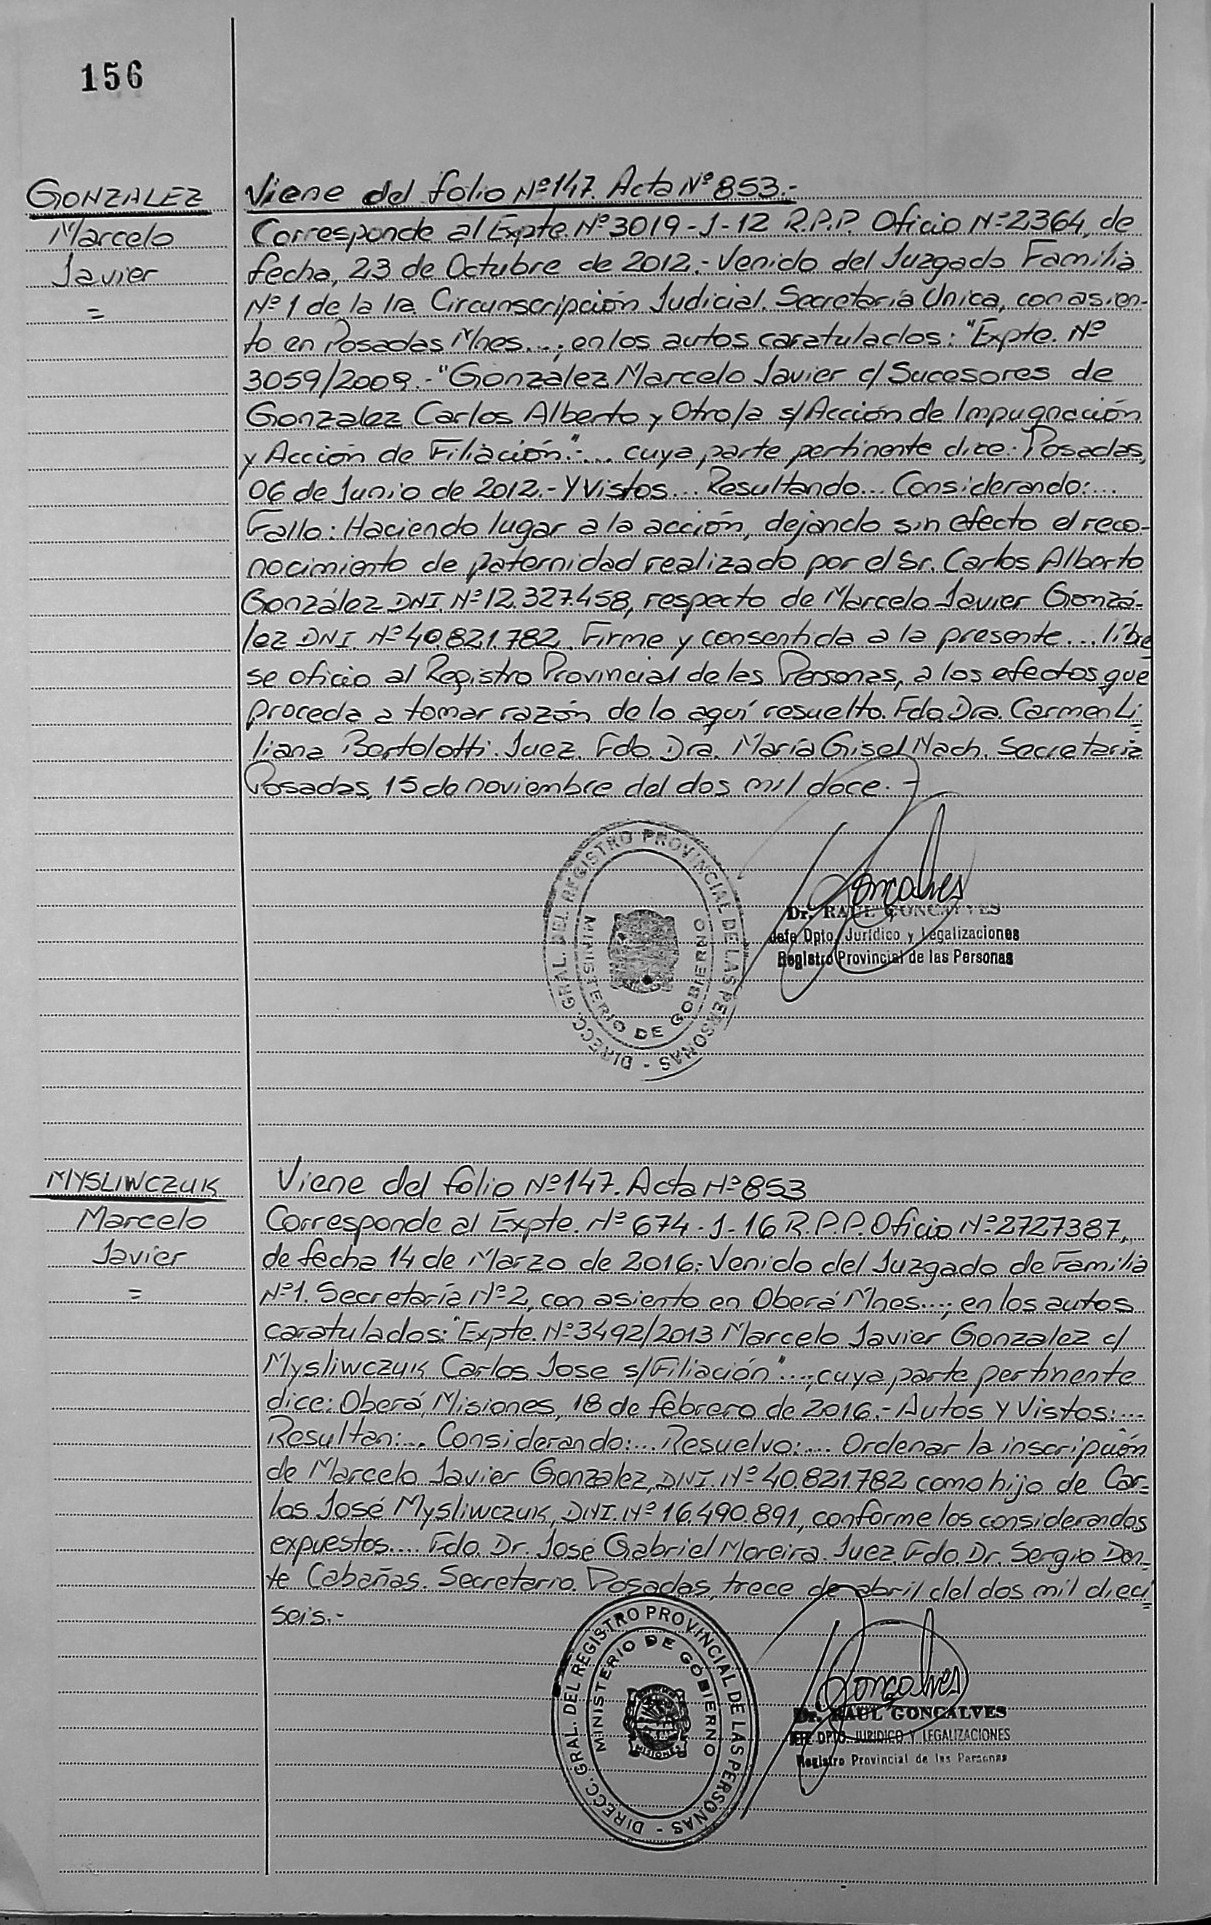 156
GONZALEZ
Marcelo
Javier
=
Viene del folio Nº 147. Acta Nº 853.-
Corresponde al Expte. Nº 3019-J-12 R.P.P. Oficio Nº 2364, de
fecha, 23 de Octubre de 2012.- Venido del Juzgado Familia
Nº 1 de la 1ra. Circunscripción Judicial. Secretaría Unica, con asien-
to en Posadas Mnes...; en los autos caratulados: "Expte. Nº
3059/2009.- "Gonzalez Marcelo Javier c/ Sucesores de
Gonzalez Carlos Alberto y Otro/a s/ Acción de Impugnación
y Acción de Filiación".-... cuya parte pertinente dice: Posadas,
06 de Junio de 2012.- Y Vistos... Resultando... Considerando:...
Fallo: Haciendo lugar a la acción, dejando sin efecto el reco-
nocimiento de paternidad realizado por el Sr. Carlos Alberto
González DNI. Nº 12.327.458, respecto de Marcelo Javier Gonzá-
lez DNI. Nº 40.821.782. Firme y consentida a la presente... líbre
se oficio al Registro Provincial de las Personas, a los efectos que
proceda a tomar razón de lo aquí resuelto. Fdo. Dra. Carmen Li=
liana Bortolotti. Juez. Fdo. Dra. María Gisel Nach. Secretaria
Posadas, 15 de noviembre del dos mil doce.-
DIRECC. GRAL. DEL REGISTRO PROVINCIAL DE LAS PERSONAS -
MINISTERIO DE GOBIERNO
Goncalves
Dr. RAUL GONCALVES
Jefe Dpto. Jurídico y Legalizaciones
Registro Provincial de las Personas
MYSLIWCZUK
Marcelo
Javier
=
Viene del folio Nº 147. Acta Nº 853
Corresponde al Expte. Nº 674-J-16 R.P.P. Oficio Nº 2727387,
de fecha 14 de Marzo de 2016.- Venido del Juzgado de Familia
Nº 1. Secretaría Nº 2, con asiento en Oberá Mnes...; en los autos
caratulados: "Expte. Nº 3492/2013 Marcelo Javier Gonzalez c/
Mysliwczuk Carlos Jose s/ Filiación"...; cuya parte pertinente
dice: Oberá, Misiones, 18 de febrero de 2016.- Autos Y Vistos:...
Resultan:... Considerando:... Resuelvo:... Ordenar la inscripción
de Marcelo Javier Gonzalez, DNI. Nº 40.821.782 como hijo de Car-
los José Mysliwczuk, DNI. Nº 16.490.891, conforme los considerandos
expuestos.... Fdo. Dr. José Gabriel Moreira. Juez Fdo. Dr. Sergio Dan-
te Cabañas. Secretario. Posadas, trece de abril del dos mil dieci=
seis.-
DIRECC. GRAL. DEL REGISTRO PROVINCIAL DE LAS PERSONAS -
MINISTERIO DE GOBIERNO
MISIONES
Goncalves
Dr. RAUL GONCALVES
JEFE DPTO. JURIDICO Y LEGALIZACIONES
Registro Provincial de las Personas